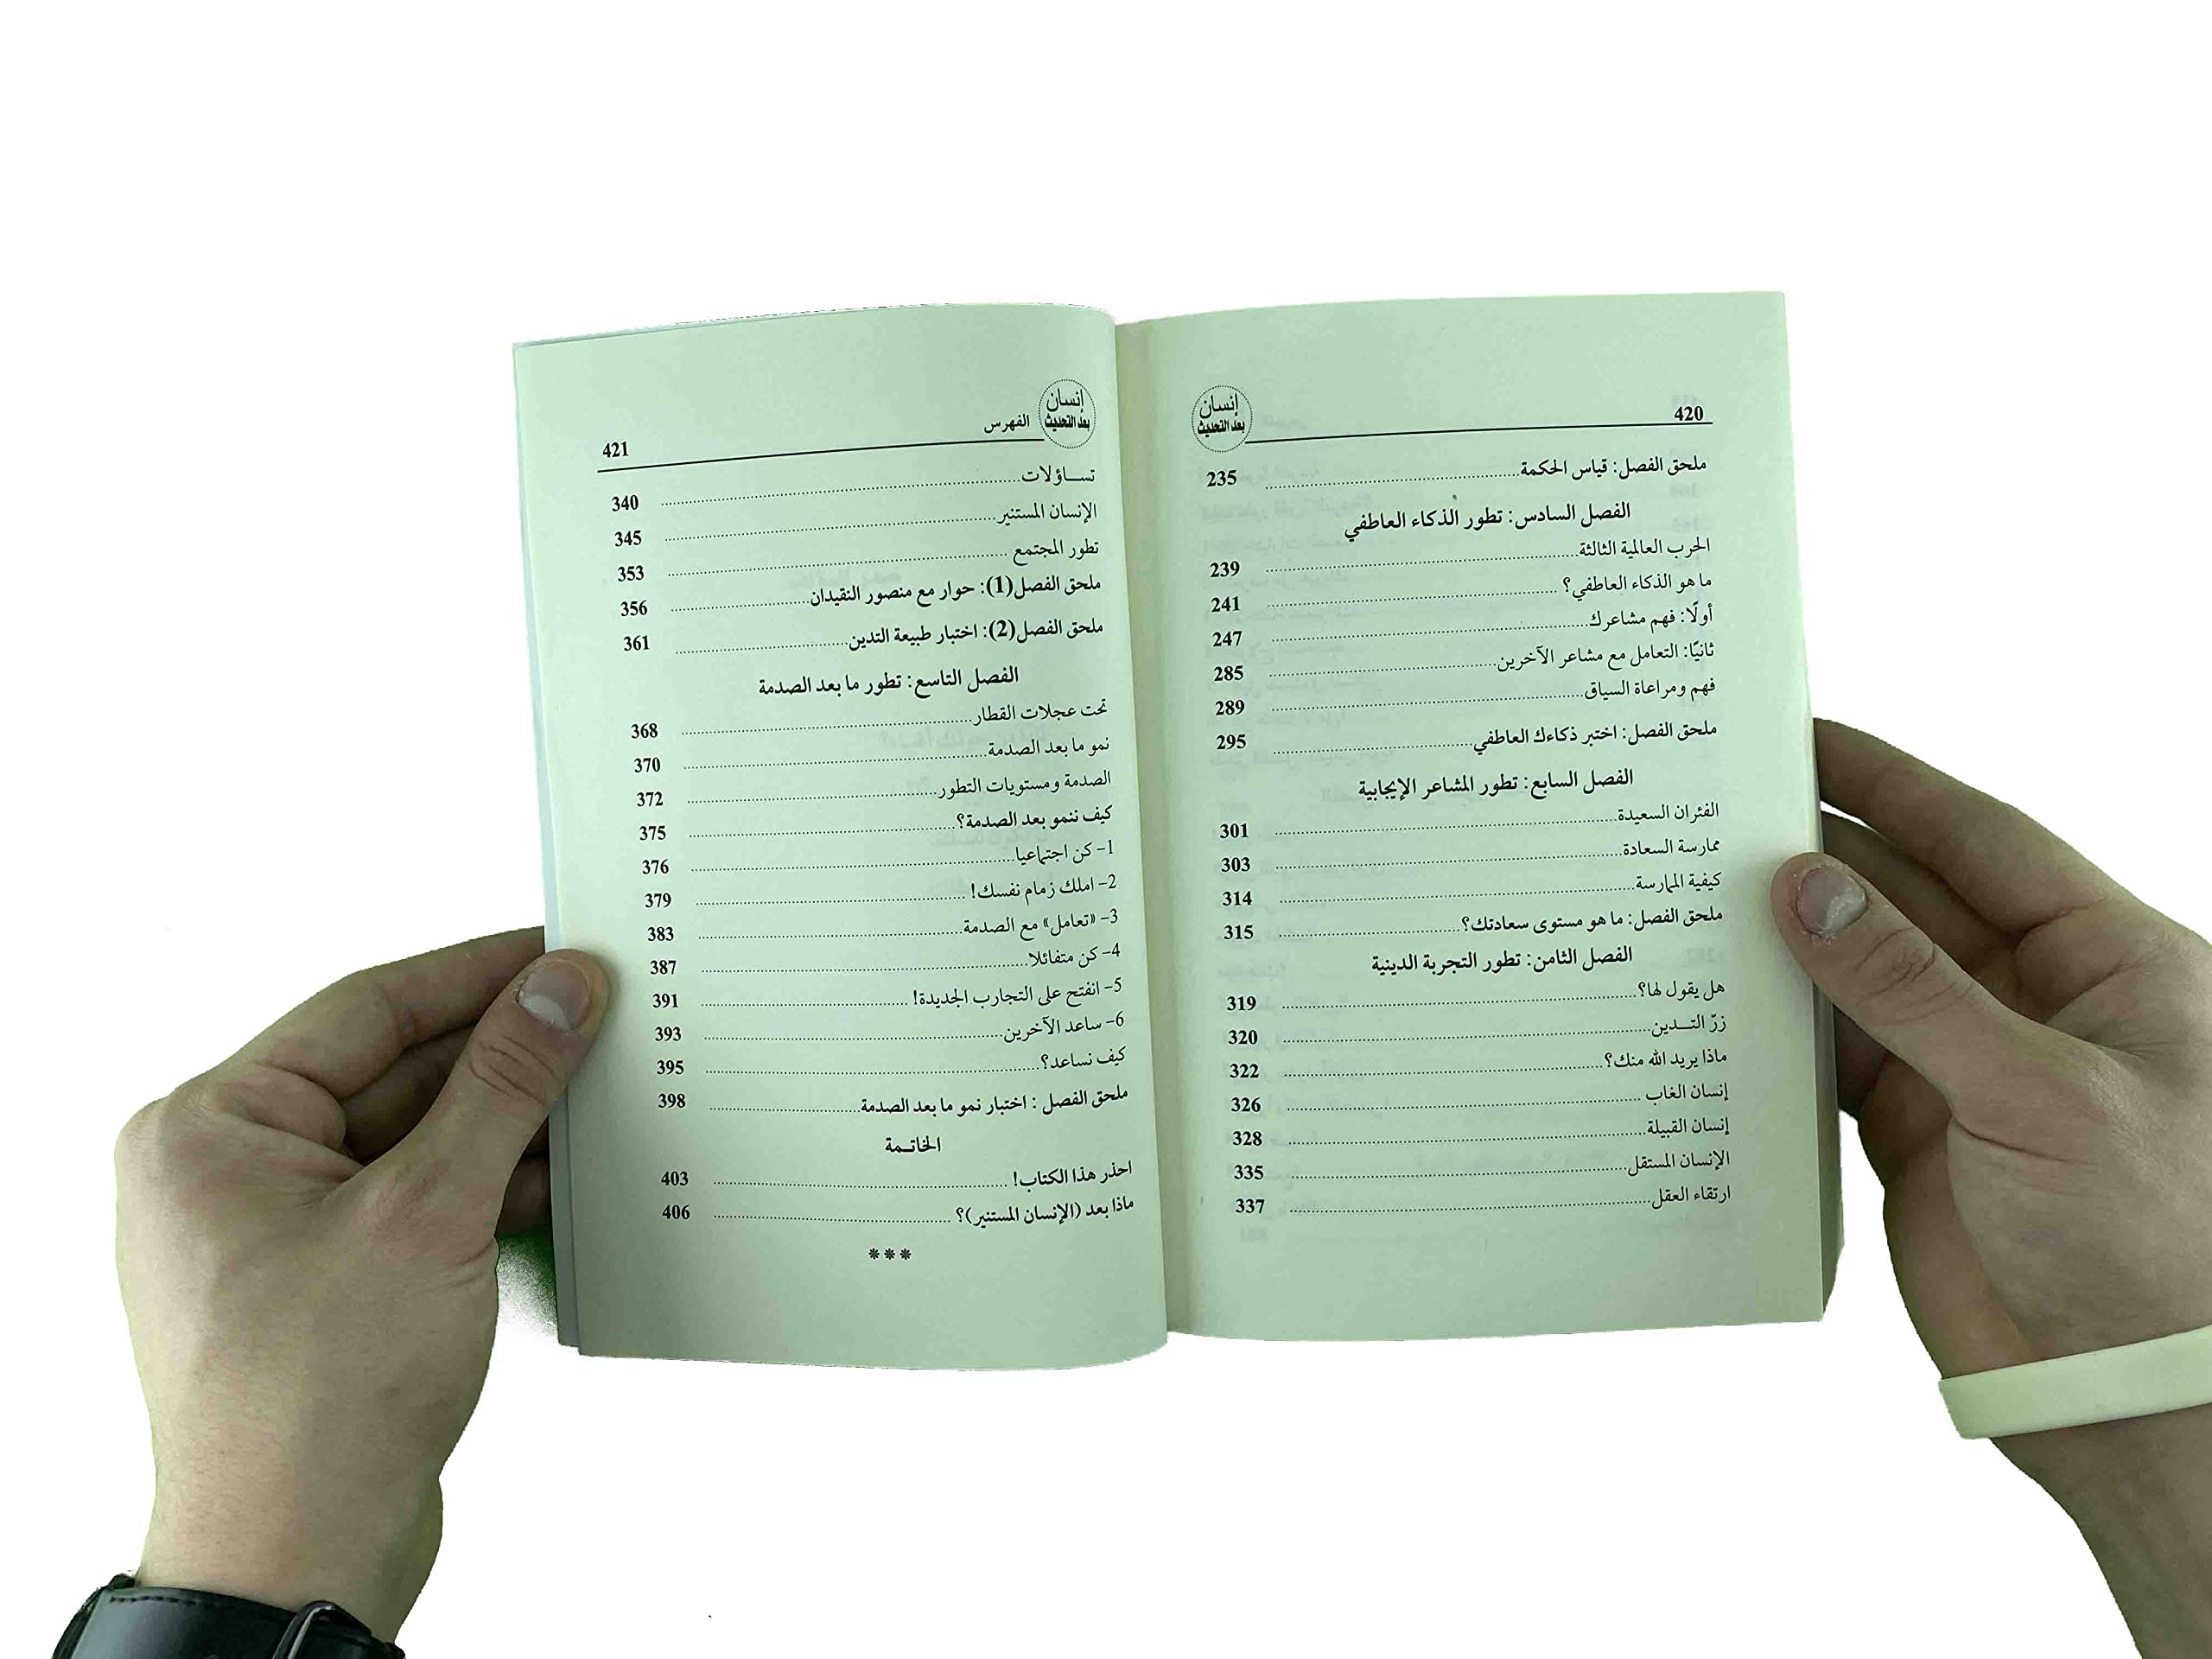 420
إنسان
بعد التحديث
ملحق الفصل: قياس الحكمة 235
الفصل السادس: تطور الذكاء العاطفي
الحرب العالمية الثالثة 239
ما هو الذكاء العاطفي؟ 241
أولًا: فهم مشاعرك 247
ثانيًا: التعامل مع مشاعر الآخرين 285
فهم ومراعاة السياق 289
ملحق الفصل: اختبر ذكاءك العاطفي 295
الفصل السابع: تطور المشاعر الإيجابية
الفئران السعيدة 301
ممارسة السعادة 303
كيفية الممارسة 314
ملحق الفصل: ما هو مستوى سعادتك؟ 315
الفصل الثامن: تطور التجربة الدينية
هل يقول لها؟ 319
زرّ التـــدين 320
ماذا يريد الله منك؟ 322
إنسان الغاب 326
إنسان القبيلة 328
الإنسان المستقل 335
ارتقاء العقل 337
إنسان
بعد التحديث
الفهرس
421
تســـاؤلات 340
الإنسان المستنير 345
تطور المجتمع 353
ملحق الفصل(1): حوار مع منصور النقيدان 356
ملحق الفصل(2): اختبار طبيعة التدين 361
الفصل التاسع: تطور ما بعد الصدمة
تحت عجلات القطار 368
نمو ما بعد الصدمة 370
الصدمة ومستويات التطور 372
كيف ننمو بعد الصدمة؟ 375
1- كن اجتماعيا 376
2- املك زمام نفسك! 379
3- «تعامل» مع الصدمة 383
4- كن متفائلا 387
5- انفتح على التجارب الجديدة! 391
6- ساعد الآخرين 393
كيف نساعد؟ 395
ملحق الفصل : اختبار نمو ما بعد الصدمة 398
الخاتـمة
احذر هذا الكتاب! 403
ماذا بعد (الإنسان المستنير)؟ 406
***